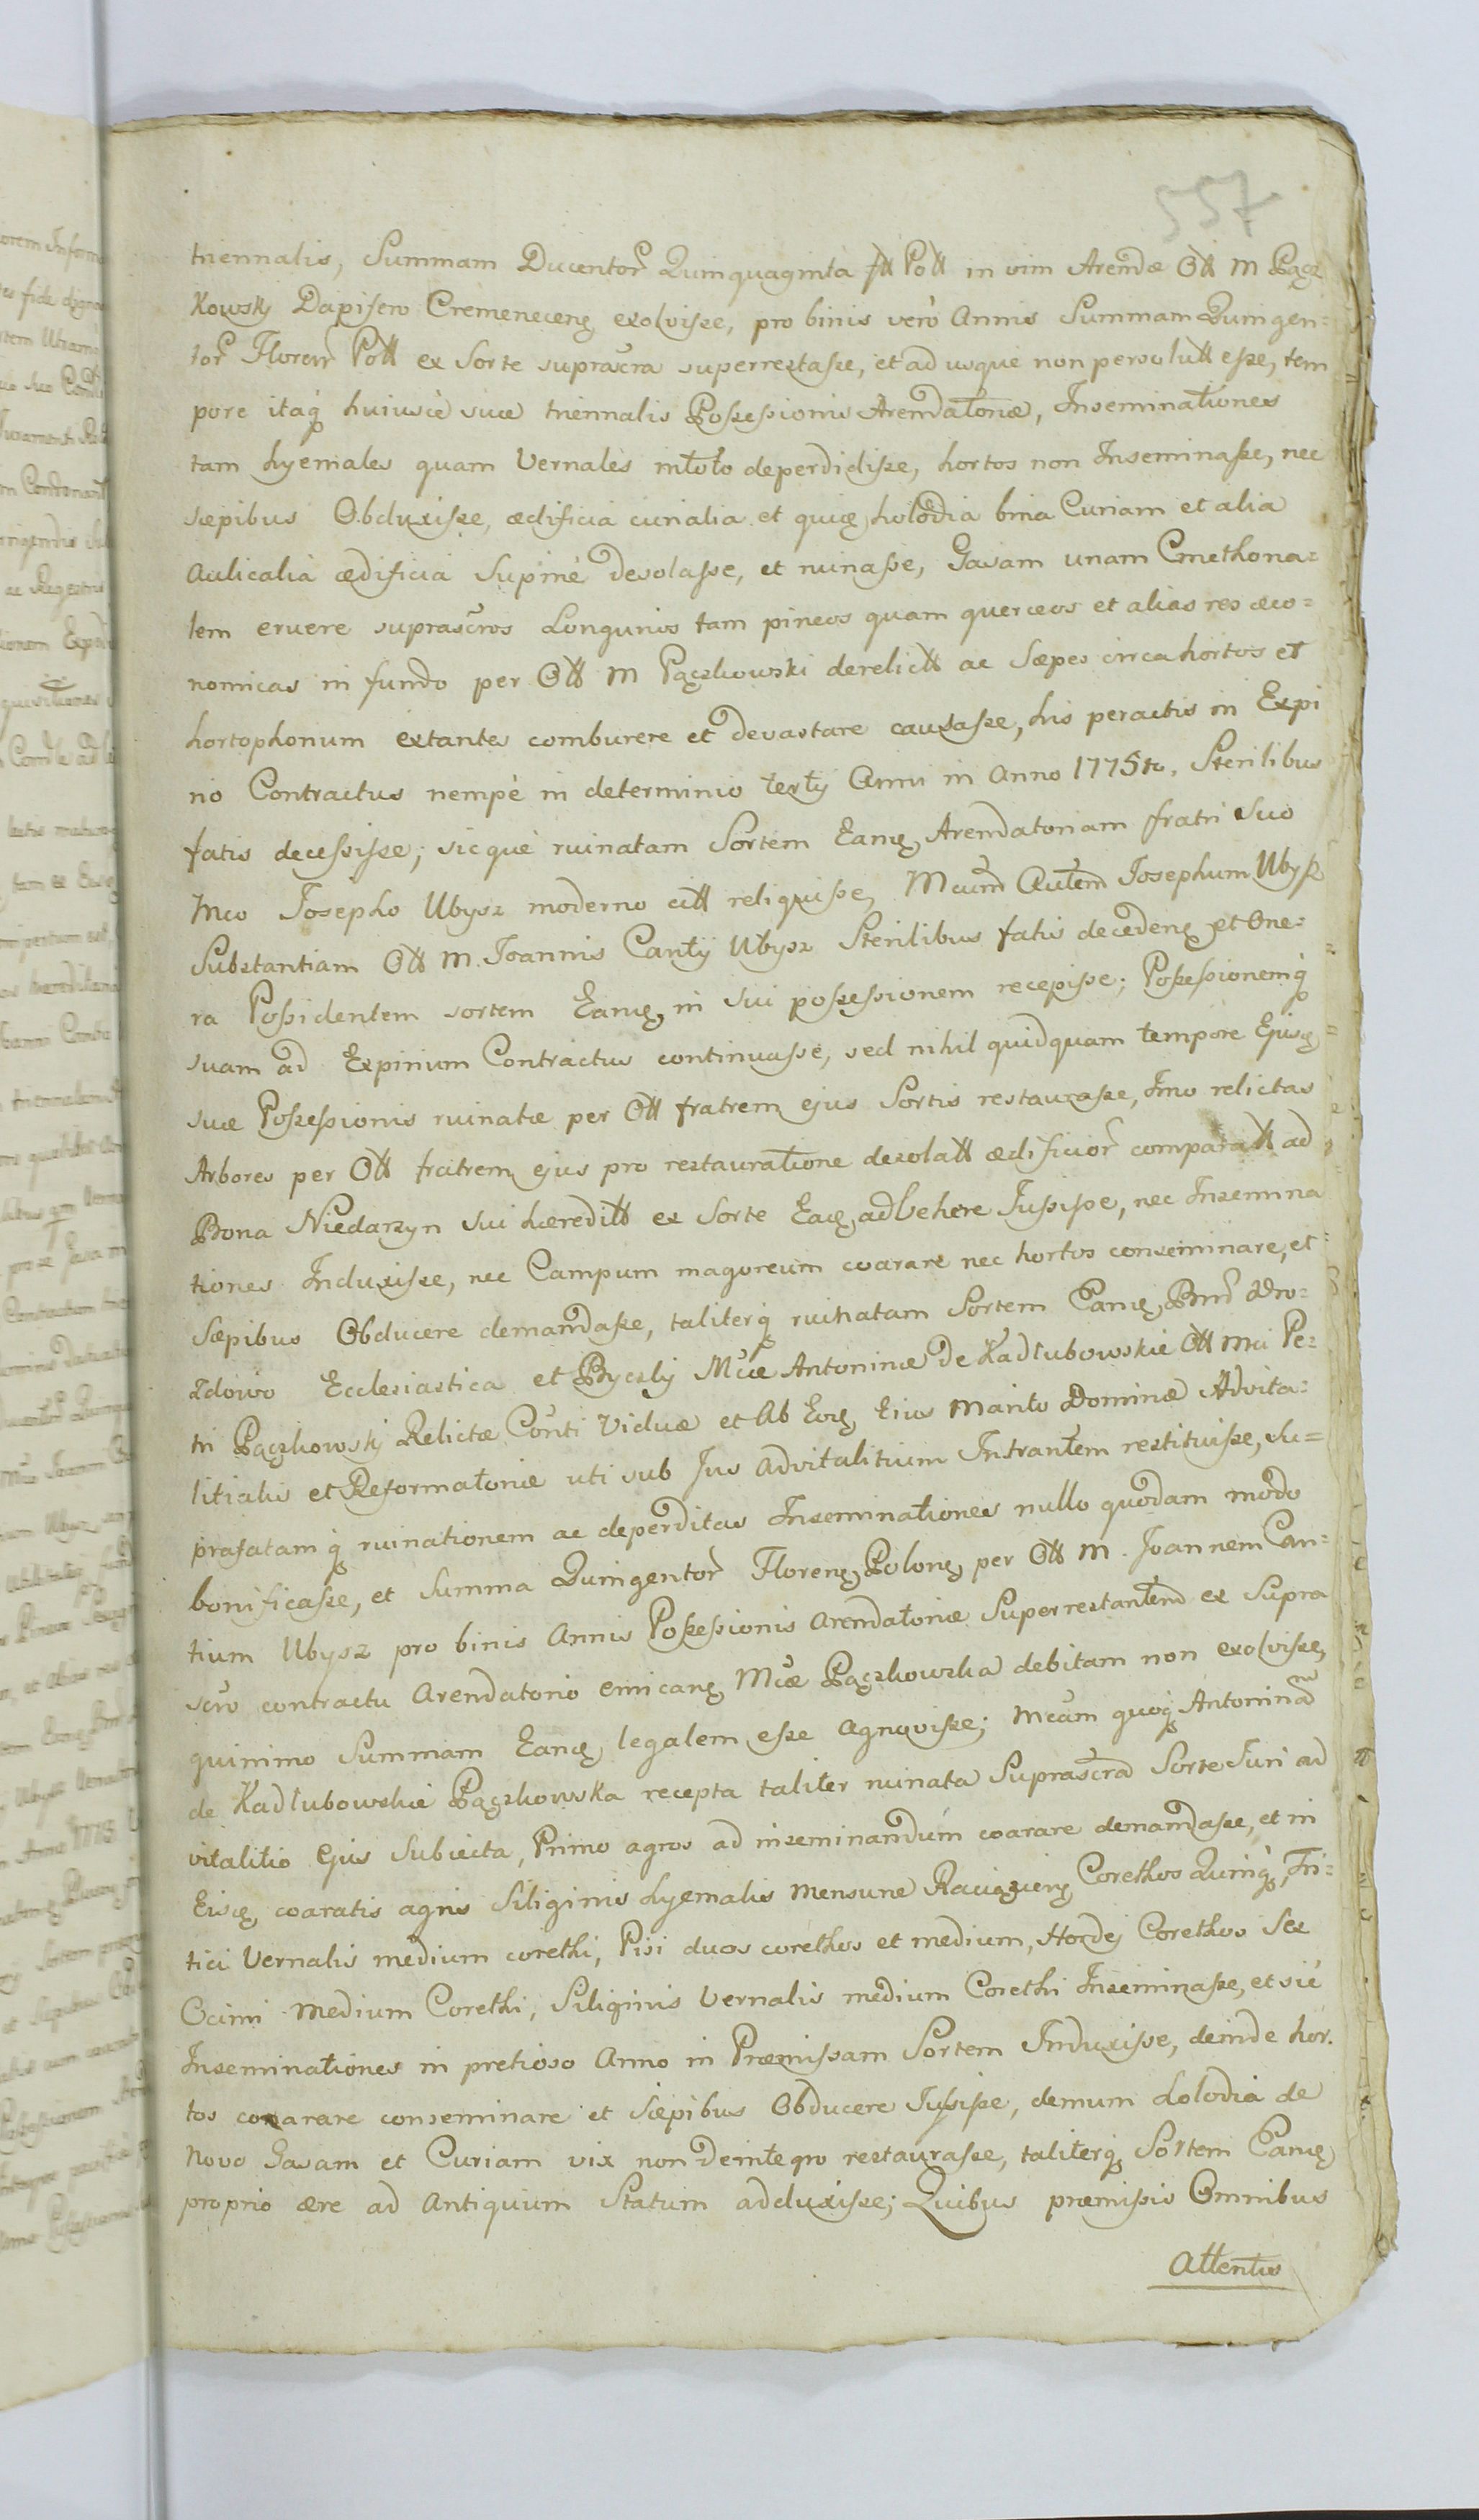 557
triennalis, Summam Ducentor Quinquaginta fll Poll in vim Arendæ Oll M Pącz
kowsky Dapifero Cremenecens exolvisse, pro binis verò Annis Summam Quingen=
tor Floren Poll ex Sorte suprascra superrestasse, et ad usque non persolutt esse, tem
pore itaq huiusce suæ triennalis Possessionis Arendatoriæ, Inseminationes
tam hyemales quam Vernales intoto deperdidisse, hortos non Inseminasse, nec
sæpibus Obduxisse, ædificia curialia et quię, holodia bina Curiam et alia
Aulicalia ædificia Supinè desolasse, et ruinasse, Gazam unam Cmethona=
lem eruere suprascros Longurios tam pineos quam querceos et alias res œco=
nomicas in fundo per Oll M Pączkowski derelictt ac Sæpes circa hortos et
hortophonum extantes comburere et devastare causasse, his peractis in Expi
rio Contractus nempè in determinio tertij Anni in Anno 1775to, Sterilibus
fatis decessisse; sicquè ruinatam Sortem Eamę Arendatoriam fratri suo
Mco Josepho Ubysz moderno citt reliquisse, Mcum Autem Josephum Ubysz
Substantiam Oll M. Joannis Cantij Ubysz Sterilibus fatis decedenę et One=
ra Possidentem sortem Eamę in sui possessionem recepisse; Possessionemq
suam ad Expirium Contractus continuasse, sed nihil quidquam tempore Ejusę
suæ Possessionis ruinatæ per Oll fratrem ejus Sortis restaurasse, Imo relictas
Arbores per Oll fratrem ejus pro restauratione desolatt ædificior comparatt ad
Bona Niedarzyn sui hæreditt ex Sorte Eaę advehere Jussisse, nec Insemina
tiones Induxisse, nec Campum magoreum coarare nec hortos conseminare, et
Sæpibus Obducere demandasse, taliterq ruinatam Sortem Eamę Bnor Dro=
zdowo Ecclesiastica et Byczky Mcæ Antoninæ de Kadłubowskie Oll Mci Pe=
tri Pączkowsky Relictæ Conti Viduæ et Ab Eoę Ejus Marito Dominæ Advita=
litialis et Reformatoriæ uti sub Jus Advitalitium Intrantem restituisse, su=
prafatamq ruinationem ac deperditas Inseminationes nullo quodam modo
bonificasse, et Summa Quingentor Florenę Polonę per Oll M. Joannem Can=
tium Ubysz pro binis Annis Possessionis Arendatoriæ Superrestantem ex Supra
scro contractu Arendatorio emicanę Mcæ Pączkowska debitam non exolvisse,
quinimo Summam Eamę legalem esse Agnovisse; Mcam quoq Antoninam
de Kadłubowskie Pączkowska recepta taliter ruinata Suprascra Sorte Juri ad
vitalitio Ejus Subiecta, Primo agros ad inseminandum coarare demandasse, et in
Eisę coaratis agris Siliginis hyemalis Mensuræ Raciązienę Corethos Quinq, Tri=
tici Vernalis medium corethi, Pisi duos corethos et medium, Hordei Corethos Sex
Ocimi Medium Corethi, Siliginis Vernalis medium Corethi Inseminasse, et sic
Inseminationes in pretioso Anno in Præmissam Sortem Induxisse, deinde hor.
tos coarare conseminare et Sæpibus Obducere Jussisse, demum holodia de
Novo Gazam et Curiam vix non deintegro restaurasse, taliterq Sortem Eamę
proprio ære ad Antiquum Statum adduxisse; Quibus præmissis Omnibus
Attentis